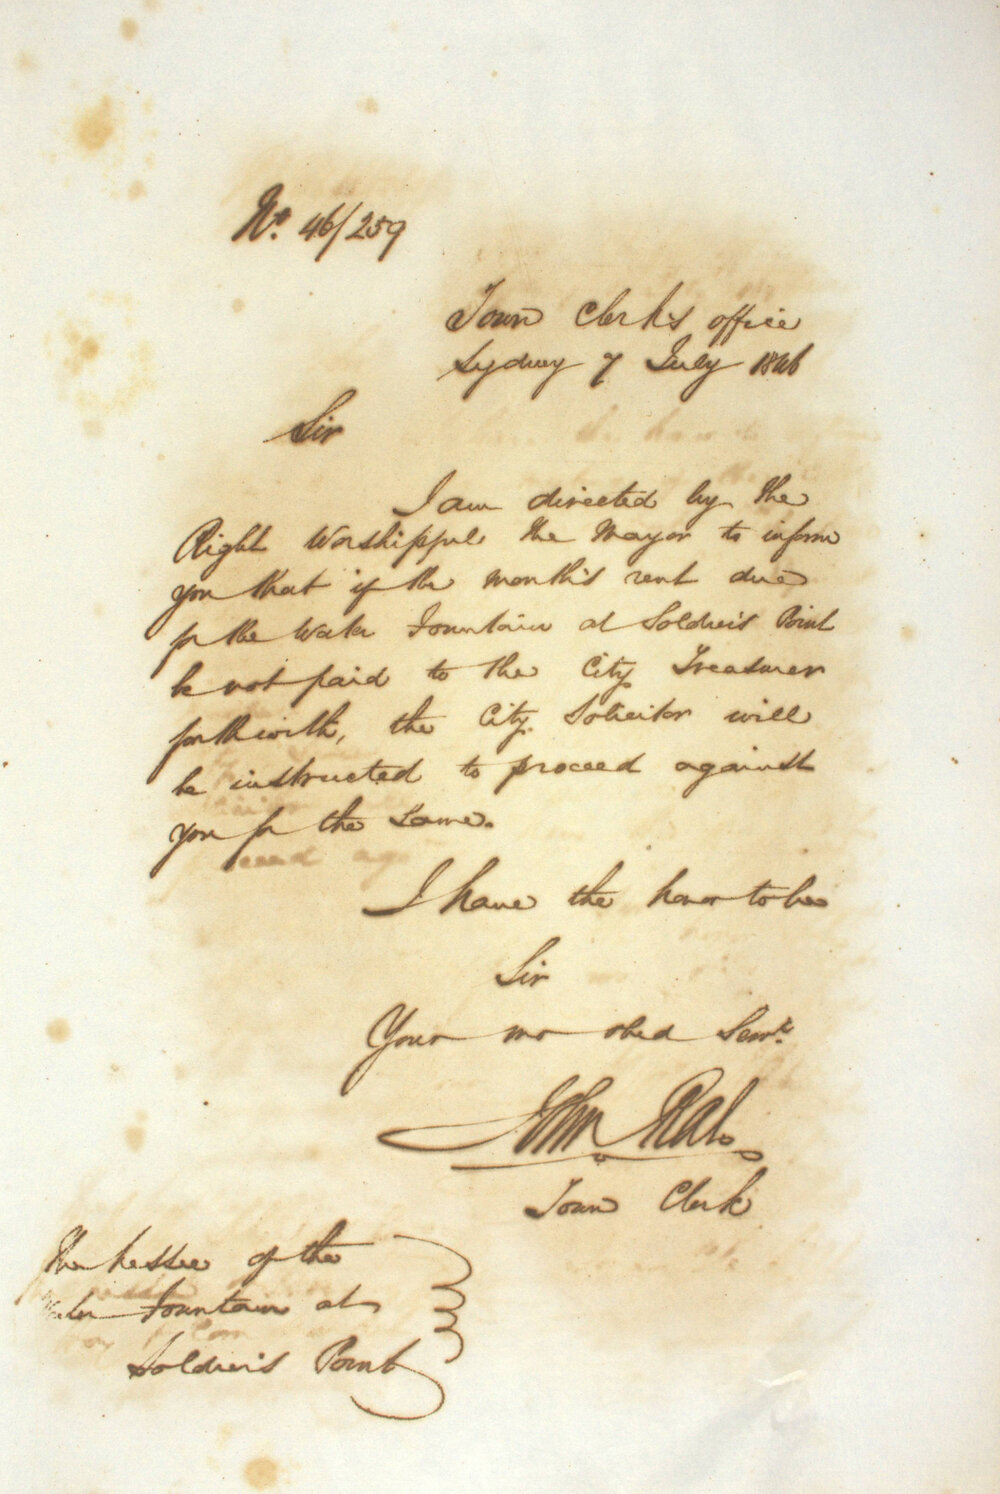 No. 46/259
Town Clerk's office
Sydney 7 July 1846
Sir
I am directed by the
Right Worshipful the Mayor to inform
you that if the month's rent due
for the Water Fountain at Soldier's Point
be not paid to the City Treasurer
forthwith, the City Solicitor will
be instructed to proceed against
you for the same.
I have the honor to be
Sir
Your mo obed Servt.
John Rae
Town Clerk
The Lessee of the
Water Fountain at
Soldier's Point